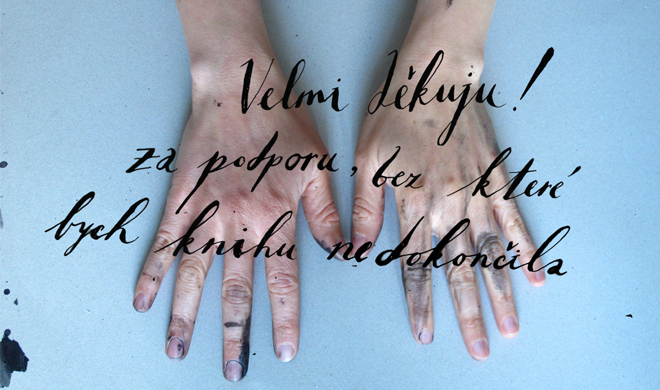 Velmi děkuju!
za podporu, bez které
bych knihu nedokončila